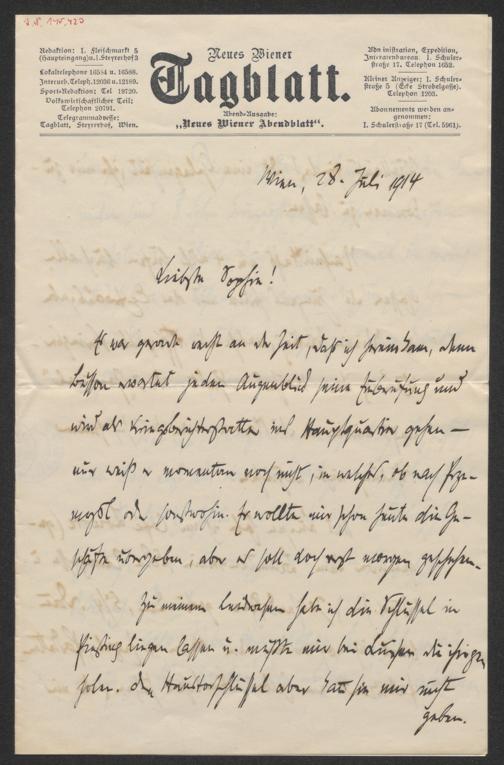 I.N. 145.420
Redaktion: I. Fleischmarkt 5
(Haupteingang) u. I. Steyrerhof 3
Lokaltelephone 16584 u. 16588.
Interurb. Teleph. 12036 u. 12189.
Sport-Redaktion: Tel 19720.
Volkswirtschaftlicher Teil:
Telephon 20791.
Telegrammadresse:
Tagblatt, Steyrerhof, Wien.
Neues Wiener
Tagblatt.
Abend-Ausgabe:
„Neues Wiener Abendblatt“.
Administration, Expedition,
Inseratenbureau: I. Schuler-
straße 17. Telephon 1652.
Kleiner Anzeiger: I. Schuler-
straße 5 (Ecke Strobelgasse).
Telephon 1203.
Abonnements werden an-
genommen:
I. Schulerstraße 17 (Tel. 5961).
Wien, 28. Juli 1914
Liebste Sophie!
Es war gerade recht an der Zeit, daß ich hereinkam, denn
erwartet jeden Augenblick seine Einberufung und
wird als Kriegsberichterstatter ins Hauptquartier gehen —
nur weiß er momentan noch nicht, in welches, ob nach Prze-
mysl oder sonstwohin. Er wollte mir schon heute die Ge-
schäfte übergeben, aber es soll doch erst morgen geschehen.
Zu meinem Leidwesen hab ich die Schlüssel in
Piesting liegen lassen u. mußte mir bei die ihrigen
holen. Den Haustorschlüssel aber hat sie mir nicht
geben.